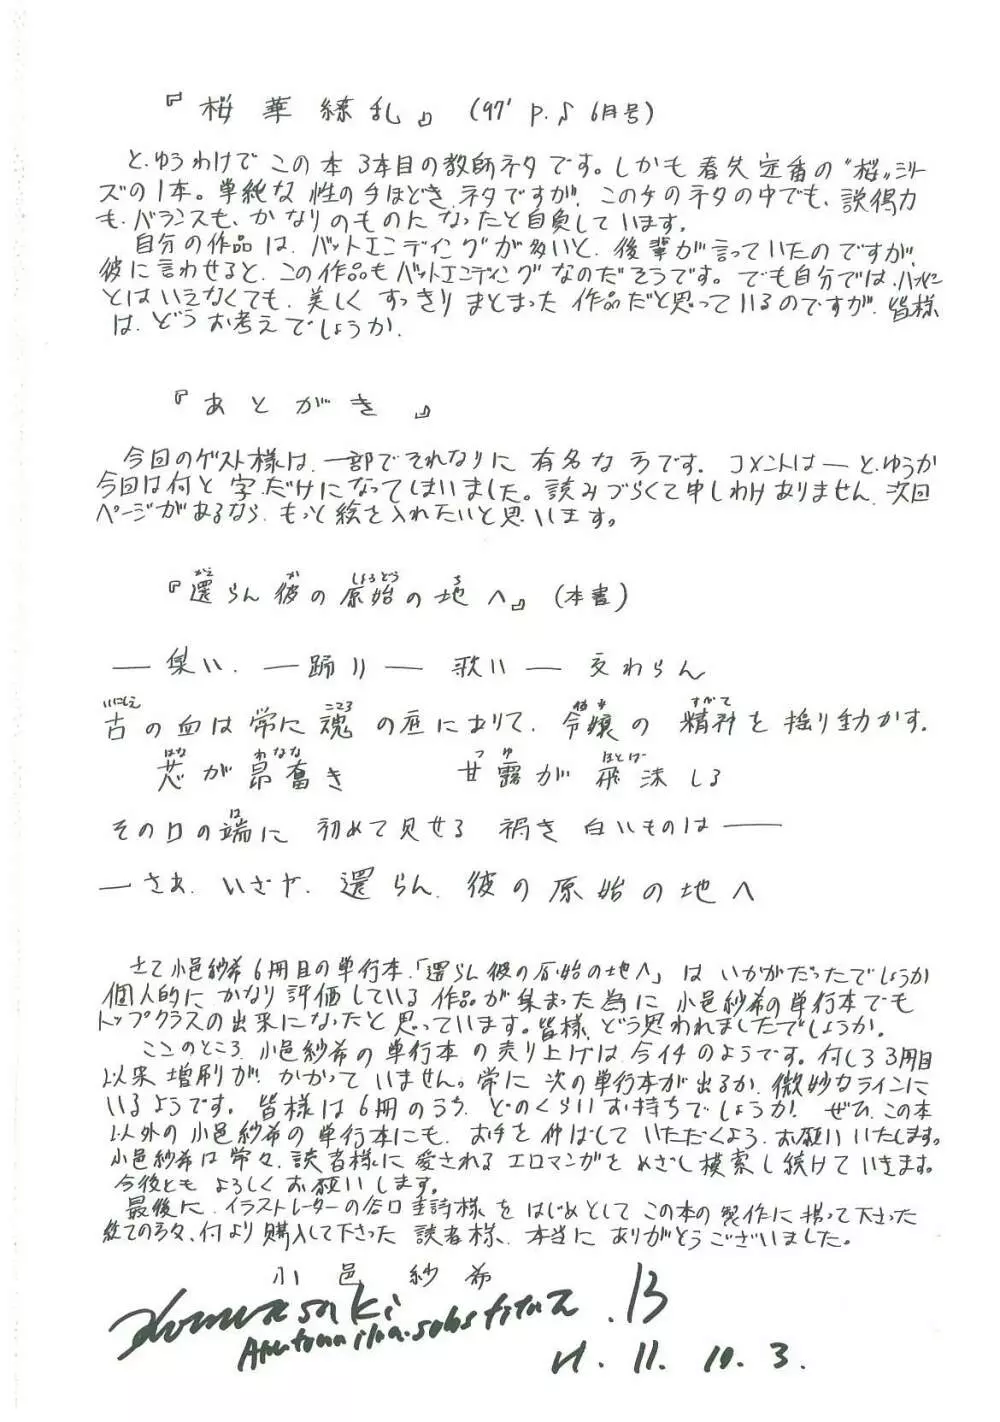 『桜華繚乱』(97' P.♪ 6月号)
と、ゆうわけで この本 3本目の教師ネタです。しかも 春失 定番の“桜”シリー
ズの1本。単純な 性の手ほどき ネタですが、この手のネタの中でも、説得力
も、バランスも、かなりのものに なったと自負しています。
自分の作品は、バットエンディングが多いと、後輩が言っていたのですが、
彼に言わせると、この作品もバットエンディング なのだ そうです。でも自分では、ハッピーエンド
とはいえなくても、美しく すっきり まとまった 作品だと思って いるのですが、皆様
は、どう お考えでしょうか、
『あとがき』
今回のゲスト様は、一部でそれなりに 有名な 方です。コメントは— と、ゆうか
今回は何と 字だけに なってしまいました。読みづらくて申しわけありません、次回
ページがあるなら、もっと絵を入れたいと思います。
『還らん 彼の 原始の 地へ』(本書)
かえ か しょうどう ち
— 集い、— 踊り — 歌い — 交わらん
いにしえ こころ すがて
古の血は 常に 魂 の座にありて、令嬢の 精神を 揺り動かす。
はな わなな つゆ ほとばし
芯が昂奮き 甘露が 飛沫しる
は
その口の端に 初めて見せる 禍き 白いものは——
— さあ、いざや、還らん、彼の原始の地へ
さて 小邑紗希 6冊目の単行本、「還らん 彼の原始の地へ」は いかがだったでしょうか
個人的に かなり 評価している 作品が 集まった 為に 小邑紗希の単行本でも
トップクラスの出来になったと思っています。皆様、どう思われましたでしょうか。
ここのところ、小邑紗希の 単行本 の売り上げは 今イチ のようです。何しろ 3冊目
以来 増刷が かかって いません。常に 次の単行本が 出るか、微妙なラインに
いるようです。皆様は 6冊のうち、どのくらい お持ちでしょうか! ぜひ、この本
以外の 小邑紗希の 単行本にも、お手を 伸ばして いただくよう、お願い いたします。
小邑紗希は 常々、読者様に 愛される エロマンガを めざし 模索し続けて いきます。
今後とも よろしく お願いします。
最後に、イラストレーターの谷口 圭詩様 を はじめとして この本の 製作に 携って下さった
総ての方々、何より 購入して下さった 読者様、本当に ありがとうございました。
小邑 紗希
B
H.11.10.3.